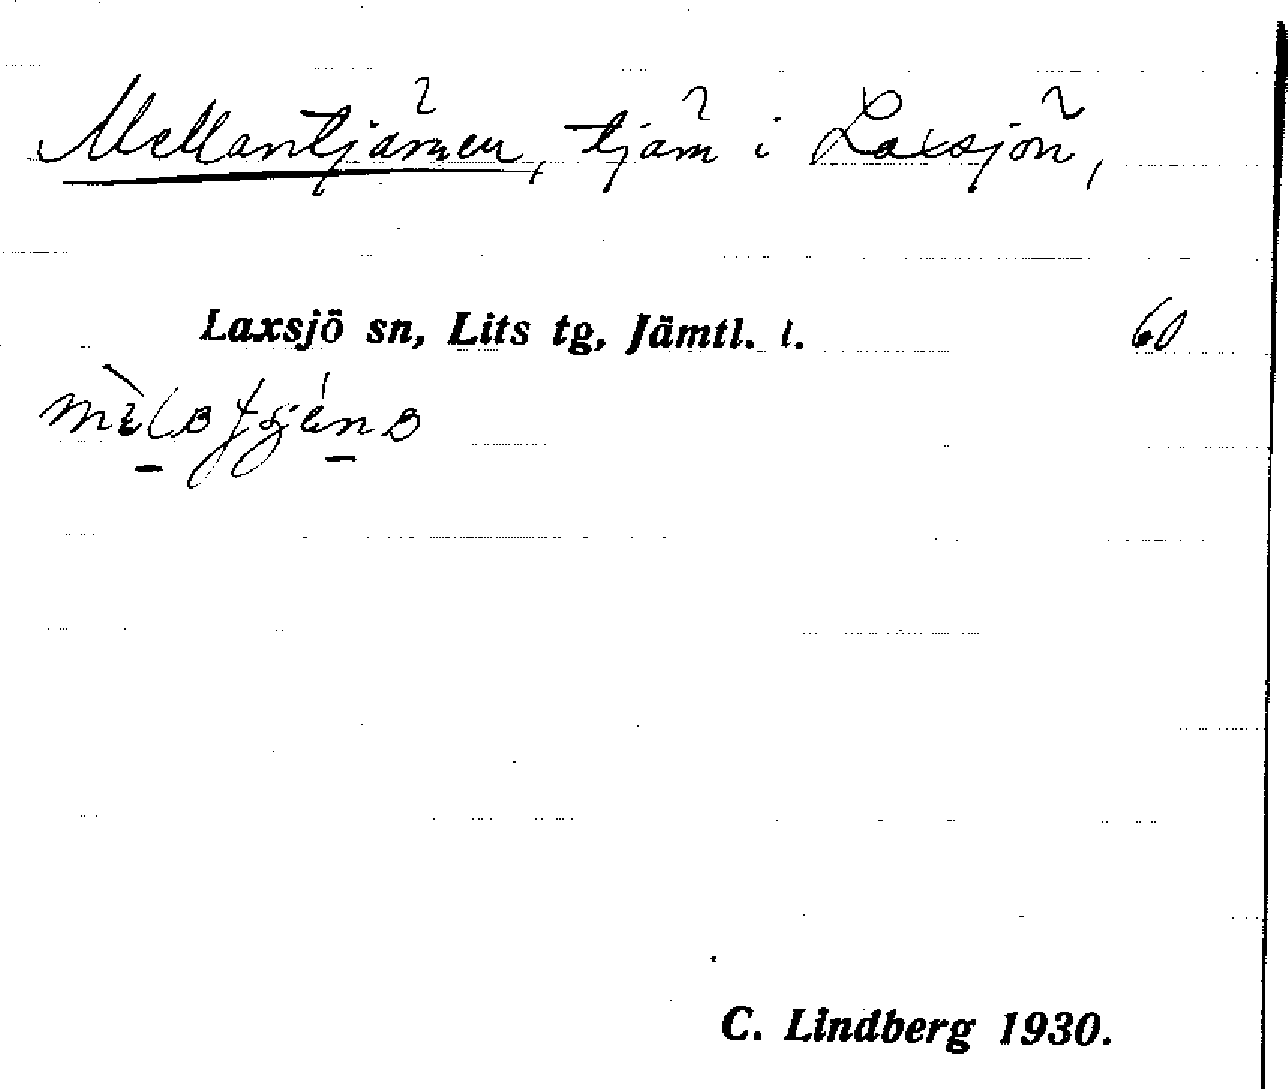 Mellantjärnen, tjärn i Laxsjön,
Laxsjö sn, Lits tg, Jämtl. l. 60
C. Lindberg 1930.